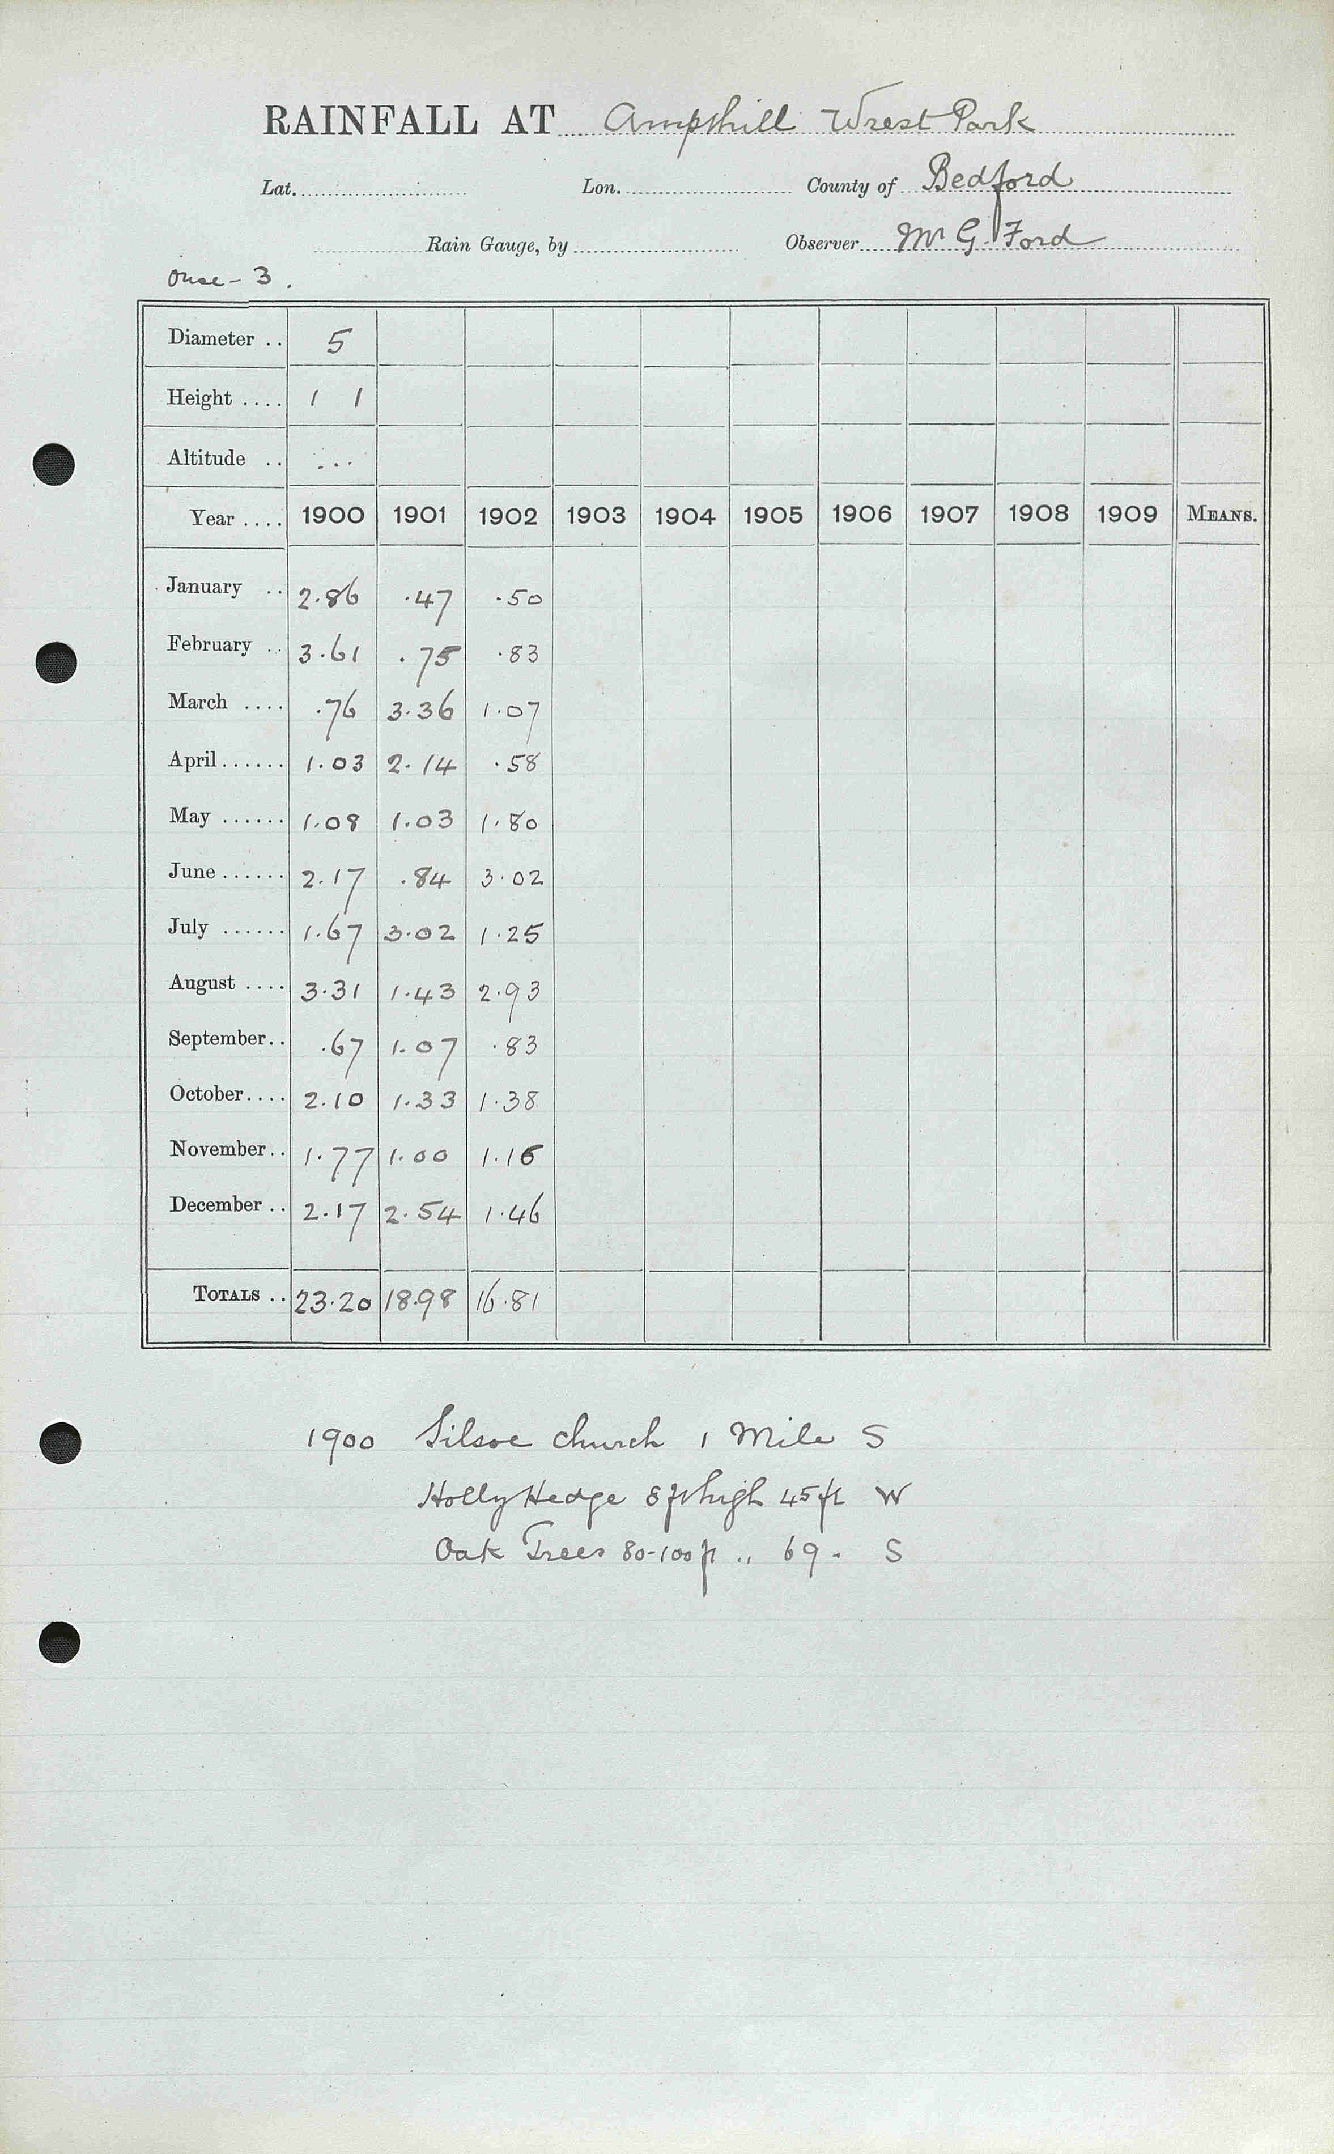 RAINFALL AT Ampthill Wrest Park
Lat. Lon. County of Bedford
Rain Gauge, by Observer Mr G. Ford
Ouse - 3.
Diameter .. 5
Height .... 1 1
Altitude .. ...
Year .... 1900 1901 1902 1903 1904 1905 1906 1907 1908 1909 MEANS.
January .. 2.86 .47 .50
February .. 3.61 .75 .83
March .... .76 3.36 1.07
April ...... 1.03 2.14 .58
May ...... 1.08 1.03 1.80
June ...... 2.17 .84 3.02
July ...... 1.67 3.02 1.25
August .... 3.31 1.43 2.93
September .. .67 1.07 .83
October .... 2.10 1.33 1.38
November .. 1.77 1.00 1.16
December .. 2.17 2.54 1.46
TOTALS .. 23.20 18.98 16.81
1900 Silsoe church 1 Mile S
Holly Hedge 8 ft high 45 ft W
Oak Trees 80-100 ft .. 69 - S